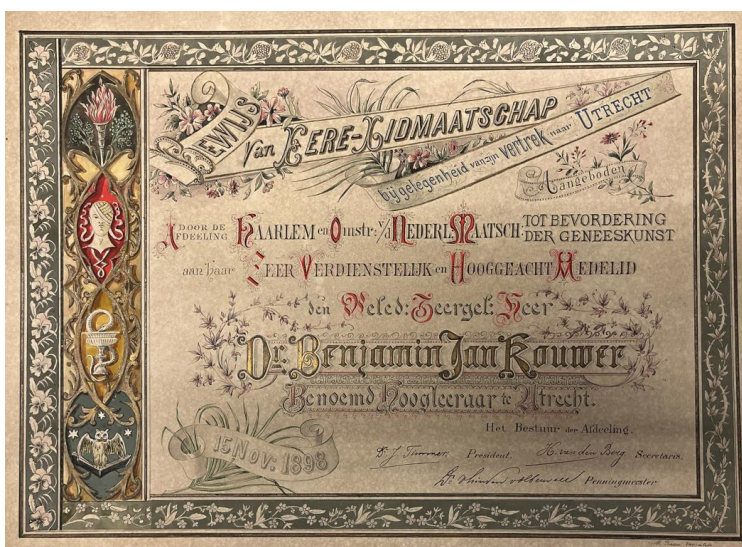 BEWIJS
Van EERE-LIDMAATSCHAP
bij gelegenheid van zijn vertrek naar UTRECHT
Aangeboden
DOOR DE AFDEELING HAARLEM en Omstr: v/d NEDERL MAATSCH: TOT BEVORDERING DER GENEESKUNST
aan haar ZEER VERDIENSTELIJK en HOOGGEACHT MEDELID
den Weled: Zeergel: Heer
Dr. Benjamin Jan Kouwer
Benoemd Hoogleeraar te Utrecht.
Het Bestuur der Afdeeling.
15 Nov: 1898
Dr. J. Timmer. President. H. van den Berg Secretaris.
Penningmeester